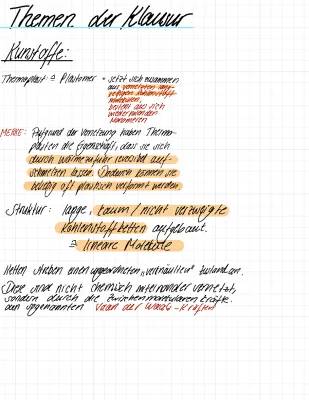 Themen der Klausur
Kunstoffe:
Thermoplast ≙ Plastomer = setzt sich zusammen
aus vernetzten lang-
kettigen Kohlenstoff
molekülen,
besteht aus sich
wiederholenden
Monomeren
MERKE: Aufgrund der Vernetzung haben Thermo-
plasten die Eigenschaft, dass sie sich
durch wärmezufuhr reversibel auf-
schmelzen lassen. Dadurch können sie
beliebig oft plastisch verformt werden
Struktur: lange, kaum / nicht verzweigte
Kohlenstoffketten aufgebaut.
⇒ lineare Moleküle
Ketten streben einen ungeordneten, "verknäulten" Zustand an.
Diese sind nicht chemisch miteinander vernetzt,
sondern durch die zwischenmolekularen Kräfte.
den sogenannten Van der Waals-Kräften